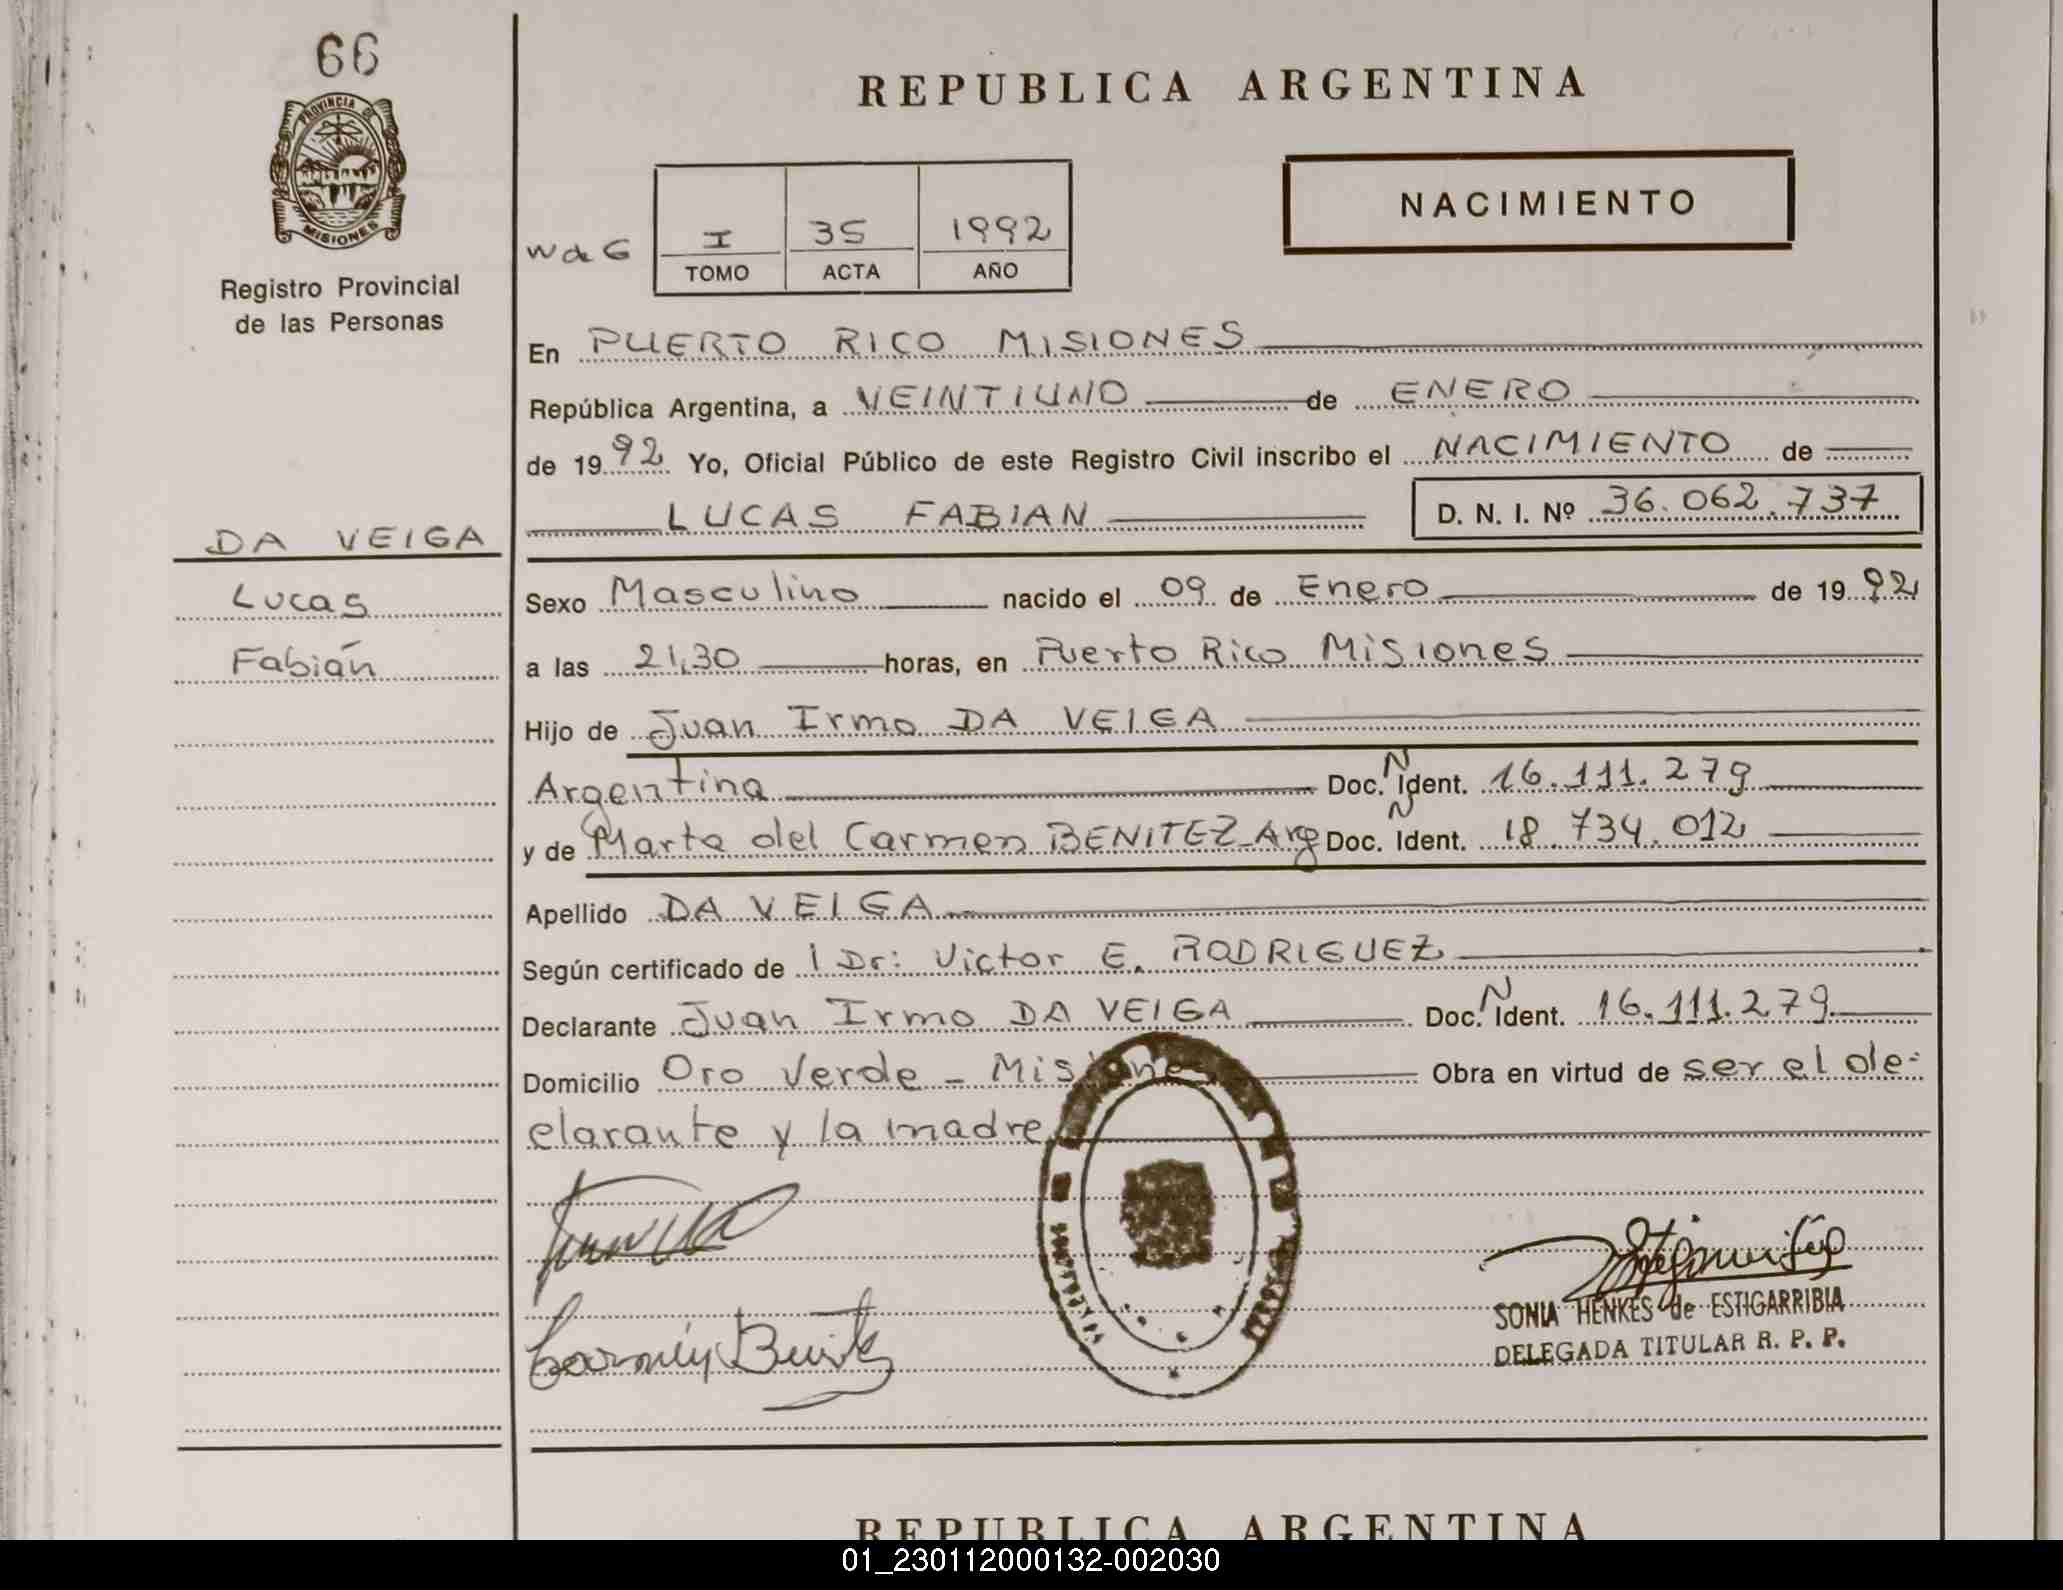 66
PROVINCIA DE
MISIONES
Registro Provincial
de las Personas
REPUBLICA ARGENTINA
NACIMIENTO
W de G
I 35 1992
TOMO ACTA AÑO
En PUERTO RICO MISIONES
República Argentina, a VEINTIUNO de ENERO
de 1992 Yo, Oficial Público de este Registro Civil inscribo el NACIMIENTO de
LUCAS FABIAN D. N. I. Nº 36.062.737
DA VEIGA
Lucas
Fabián
Sexo Masculino nacido el 09 de Enero de 1992
a las 21,30 horas, en Puerto Rico Misiones
Hijo de Juan Irmo DA VEIGA
Argentina Doc. N Ident. 16.111.279
y de Marta del Carmen BENITEZ-Arg Doc. N Ident. 18.734.012
Apellido DA VEIGA
Según certificado de l Dr: Victor E. RODRIGUEZ
Declarante Juan Irmo DA VEIGA Doc. N Ident. 16.111.279
Domicilio Oro Verde - Misiones Obra en virtud de ser el de-
clarante y la madre
Carmen Benitez
SONIA HENKES de ESTIGARRIBIA
DELEGADA TITULAR R. P. P.
REPUBLICA ARGENTINA
01_230112000132-002030